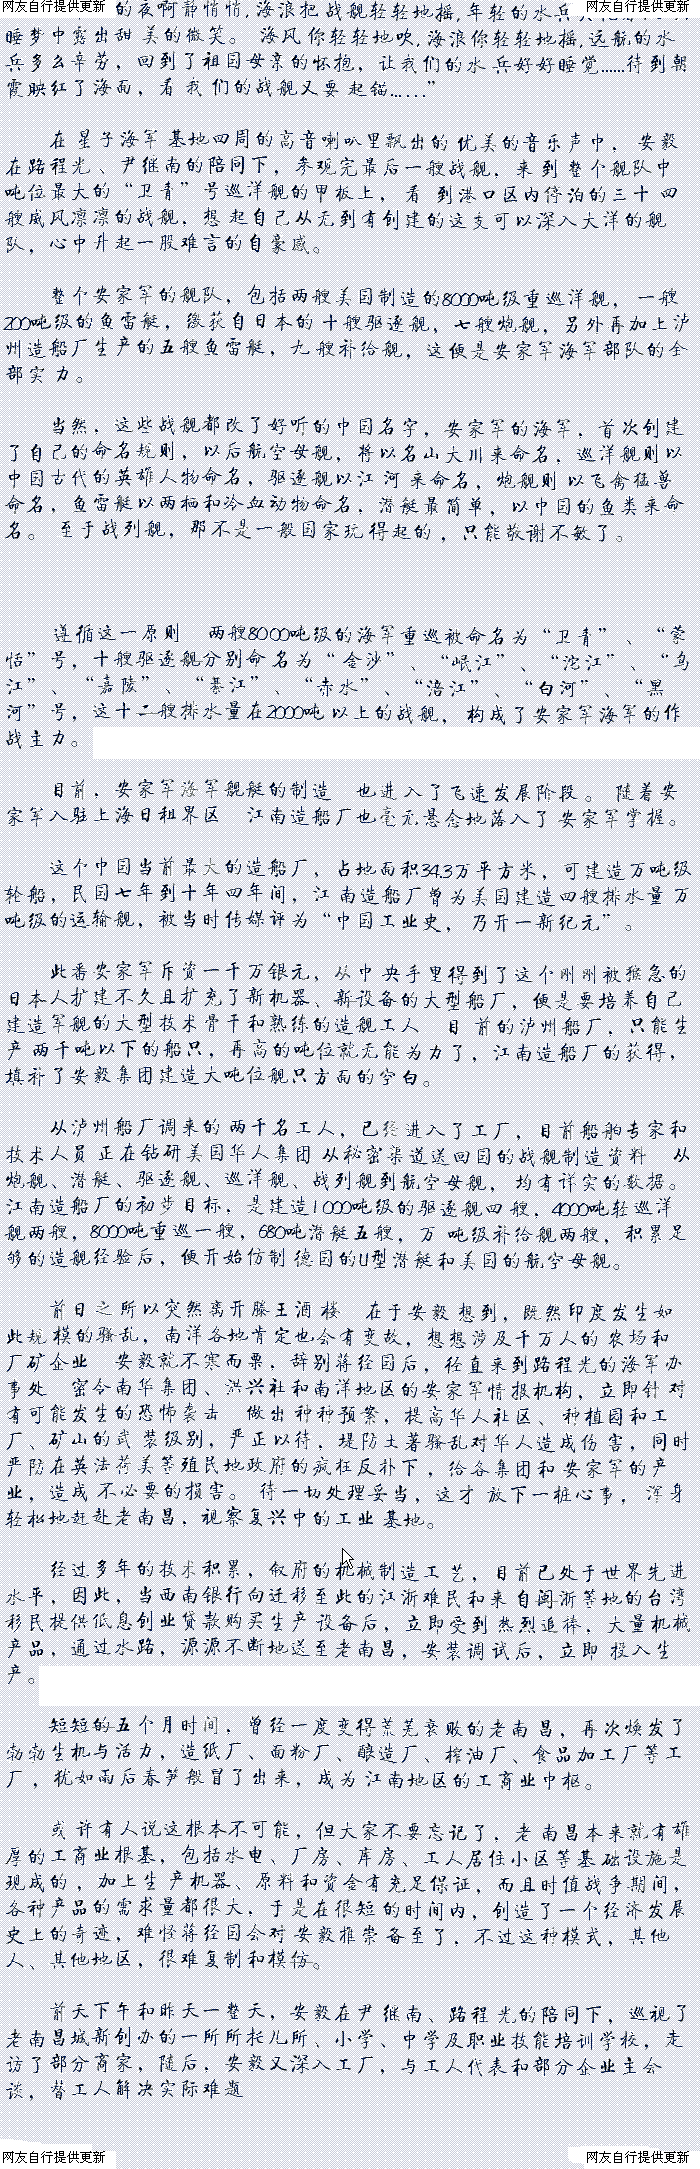 网友自行提供更新 网友自行提供更新
的夜啊静悄悄,海浪把战舰轻轻地摇,年轻的水兵
睡梦中露出甜美的微笑。海风你轻轻地吹,海浪你轻轻地摇,远航的水
兵多么辛劳,回到了祖国母亲的怀抱,让我们的水兵好好睡觉……待到朝
霞映红了海面,看我们的战舰又要起锚……”
在星子海军基地四周的高音喇叭里飘出的优美的音乐声中,安毅
在路程光、尹继南的陪同下,参观完最后一艘战舰,来到整个舰队中
吨位最大的“卫青”号巡洋舰的甲板上,看到港口区内停泊的三十四
艘威风凛凛的战舰,想起自己从无到有创建的这支可以深入大洋的舰
队,心中升起一股难言的自豪感。
整个安家军的舰队,包括两艘美国制造的8000吨级重巡洋舰,一艘
200吨级的鱼雷艇,缴获自日本的十艘驱逐舰,七艘炮舰,另外再加上泸
州造船厂生产的五艘鱼雷艇,九艘补给舰,这便是安家军海军部队的全
部实力。
当然,这些战舰都改了好听的中国名字,安家军的海军,首次创建
了自己的命名规则,以后航空母舰,将以名山大川来命名,巡洋舰则以
中国古代的英雄人物命名,驱逐舰以江河来命名,炮舰则以飞禽猛兽
命名,鱼雷艇以两栖和冷血动物命名,潜艇最简单,以中国的鱼类来命
名。至于战列舰,那不是一般国家玩得起的,只能敬谢不敏了。
遵循这一原则 两艘8000吨级的海军重巡被命名为“卫青”、“蒙
恬”号,十艘驱逐舰分别命名为“金沙”、“岷江”、“沱江”、“乌
江”、“嘉陵”、“綦江”、“赤水”、“涪江”、“白河”、“黑
河”号,这十二艘排水量在2000吨以上的战舰,构成了安家军海军的作
战主力。
目前,安家军海军舰艇的制造 也进入了飞速发展阶段。随着安
家军入驻上海日租界区 江南造船厂也毫无悬念地落入了安家军掌握。
这个中国当前最大的造船厂,占地面积34.3万平方米,可建造万吨级
轮船,民国七年到十年四年间,江南造船厂曾为美国建造四艘排水量万
吨级的运输舰,被当时传媒评为“中国工业史,乃开一新纪元”。
此番安家军斥资一千万银元,从中央手里得到了这个刚刚被猴急的
日本人扩建不久且扩充了新机器、新设备的大型船厂,便是要培养自己
建造军舰的大型技术骨干和熟练的造舰工人 目前的泸州船厂,只能生
产两千吨以下的船只,再高的吨位就无能为力了,江南造船厂的获得,
填补了安毅集团建造大吨位舰只方面的空白。
从泸州船厂调来的两千名工人,已经进入了工厂,目前船舶专家和
技术人员正在钻研美国华人集团从秘密渠道送回国的战舰制造资料 从
炮舰、潜艇、驱逐舰、巡洋舰、战列舰到航空母舰,均有详实的数据。
江南造船厂的初步目标,是建造1000吨级的驱逐舰四艘,4000吨轻巡洋
舰两艘,8000吨重巡一艘,680吨潜艇五艘,万吨级补给舰两艘,积累足
够的造舰经验后,便开始仿制德国的U型潜艇和美国的航空母舰。
前日之所以突然离开滕王酒楼 在于安毅想到,既然印度发生如
此规模的骚乱,南洋各地肯定也会有变故,想想涉及千万人的农场和
厂矿企业 安毅就不寒而栗,辞别蒋经国后,径直来到路程光的海军办
事处 密令南华集团、洪兴社和南洋地区的安家军情报机构,立即针对
有可能发生的恐怖袭击 做出种种预案,提高华人社区、种植园和工
厂、矿山的武装级别,严正以待,堤防土著骚乱对华人造成伤害,同时
严防在英法荷美等殖民地政府的疯狂反扑下,给各集团和安家军的产
业,造成不必要的损害。待一切处理妥当,这才放下一桩心事,浑身
轻松地赶赴老南昌,视察复兴中的工业基地。
经过多年的技术积累,叙府的机械制造工艺,目前已处于世界先进
水平,因此,当西南银行向迁移至此的江浙难民和来自闽浙等地的台湾
移民提供低息创业贷款购买生产设备后,立即受到热烈追捧,大量机械
产品,通过水路,源源不断地送至老南昌,安装调试后,立即投入生
产。
短短的五个月时间,曾经一度变得荒芜衰败的老南昌,再次焕发了
勃勃生机与活力,造纸厂、面粉厂、酿造厂、榨油厂、食品加工厂等工
厂,犹如雨后春笋般冒了出来,成为江南地区的工商业中枢。
或许有人说这根本不可能,但大家不要忘记了,老南昌本来就有雄
厚的工商业根基,包括水电、厂房、库房、工人居住小区等基础设施是
现成的,加上生产机器、原料和资金有充足保证,而且时值战争期间,
各种产品的需求量都很大,于是在很短的时间内,创造了一个经济发展
史上的奇迹,难怪蒋经国会对安毅推崇备至了,不过这种模式,其他
人、其他地区,很难复制和模仿。
前天下午和昨天一整天,安毅在尹继南、路程光的陪同下,巡视了
老南昌城新创办的一所所托儿所、小学、中学及职业技能培训学校,走
访了部分商家,随后,安毅又深入工厂,与工人代表和部分企业主会
谈,替工人解决实际难题
网友自行提供更新 网友自行提供更新